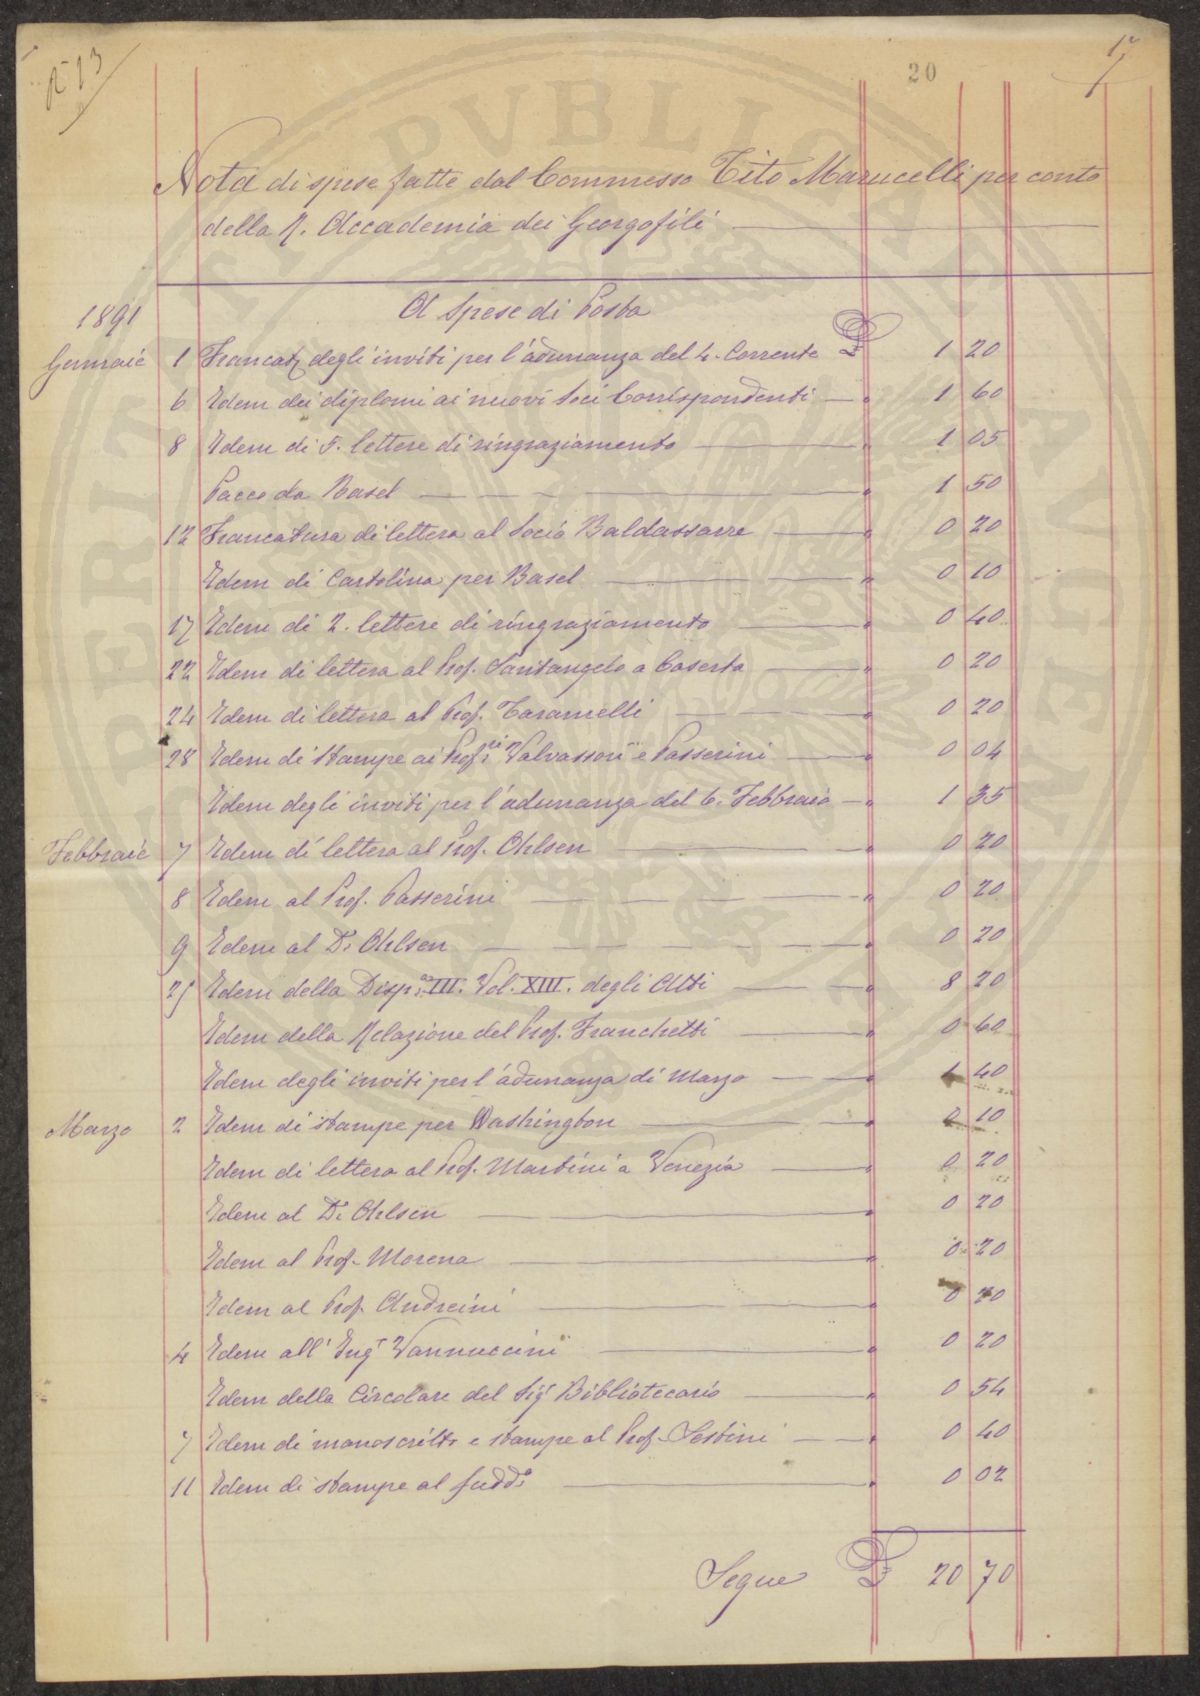 R-23
20
Nota di spese fatte dal Commesso Tito Marucelli per conto
della R. Accademia dei Georgofili
1891 A Spese di Posta
Gennaio 1 Francatᵃ degli inviti per l'adunanza del 4. Corrente £ 1 20
6 Idem dei diplomi ai nuovi Soci Corrispondenti " 1 60
8 Idem di 5. lettere di ringraziamento " 1 05
Pacco da Basel " 1 50
12 Francatura di lettera al Socio Baldassarre " 0 20
Idem di Cartolina per Basel " 0 10
17 Idem di 2. lettere di ringraziamento " 0 40
22 Idem di lettera al Prof. Santangelo a Caserta " 0 20
24 Idem di lettera al Prof. Taramelli " 0 20
28 Idem di Stampe ai Prof.ri Valvassori e Passerini " 0 04
Idem degli inviti per l'adunanza del 6. Febbraio " 1 35
Febbraio 7 Idem di lettera al Prof. Ohlsen " 0 20
8 Idem al Prof. Passerini " 0 20
9 Idem al Dr. Ohlsen " 0 20
25 Idem della Disp.a III. Vol. XIII. degli Atti " 8 20
Idem della Relazione del Prof. Franchetti " 0 60
Idem degli inviti per l'adunanza di Marzo " 1 40
Marzo 2 Idem di stampe per Washington " 0 10
Idem di lettera al Prof. Martini a Venezia " 0 20
Idem al Dr. Ohlsen " 0 20
Idem al Prof. Morena " 0 20
Idem al Prof. Andreini " 0 20
4 Idem all' Ingr Vannuccini " 0 20
Idem della Circolare del Sigr Bibliotecario " 0 54
7 Idem di manoscritto e stampe al Prof. Sestini " 0 40
11 Idem di stampe al sudd.o " 0 02
Segue £ 20 70